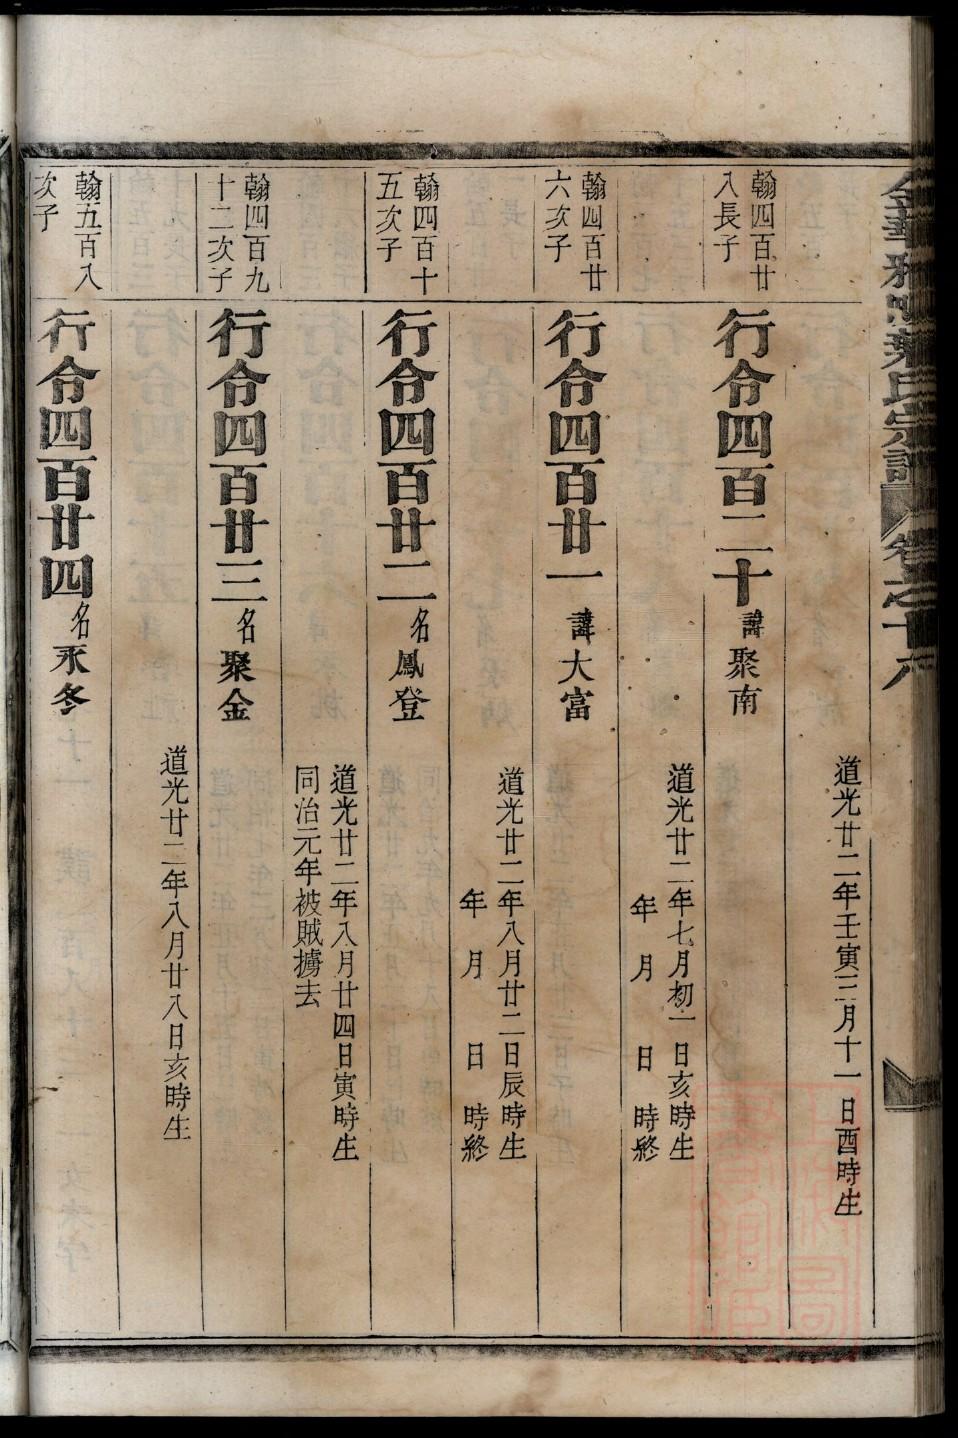 金華雅□葉氏宗譜 卷之十六
道光廿二年壬寅三月十一日酉時生
翰四百廿
八長子
行令四百二十 諱聚南
道光廿二年七月初一日亥時生
年 月 日 時終
翰四百廿
六次子
行令四百廿一 諱大富
道光廿二年八月廿二日辰時生
年 月 日 時終
翰四百十
五次子
行令四百廿二 名鳳登
道光廿二年八月廿四日寅時生
同治元年被賊擄去
翰四百九
十二次子
行令四百廿三 名聚金
道光廿二年八月廿八日亥時生
翰五百八
次子
行令四百廿四 名永冬